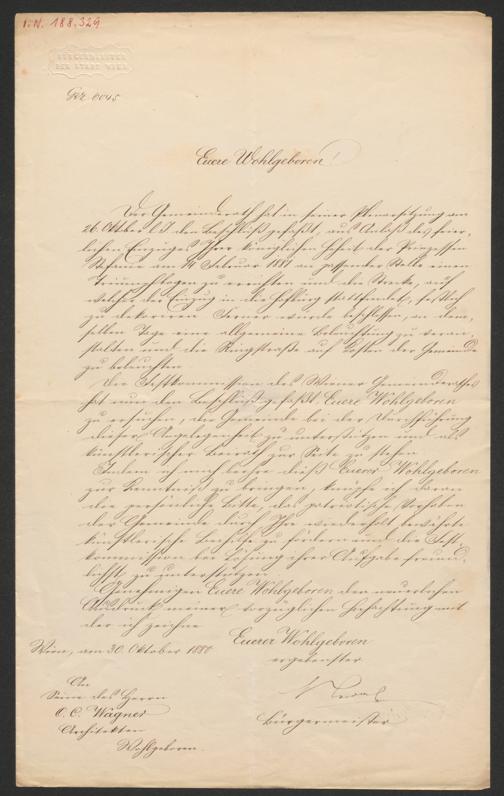 I.N. 188.329
BÜRGERMEISTER
DER STADT WIEN
GRZ. 6045
Euere Wohlgeboren!
Der Gemeinderath hat in seiner Plenarsitzung am
26. Oktober l. J. den Beschluß gefaßt, aus Anlaß des feier-
lichen Einzuges Ihrer königlichen Hoheit der Prinzessin
Stefanie am 14. Februar 1881 an passender Stelle einen
Triumphbogen zu errichten und die Strecke, auf
welcher der Einzug in die Hofburg stattfindet, festlich
zu dekoriren. Ferner wurde beschlossen, an dem-
selben Tage eine allgemeine Beleuchtung zu veran-
stalten und die Ringstraße auf Kosten der Gemeinde
zu beleuchten.
Die Festkommission des Wiener Gemeinderathes
hat nun den Beschluß gefaßt, Euere Wohlgeboren
zu ersuchen, die Gemeinde bei der Durchführung
dieser Angelegenheit zu unterstützen und als
künstlerischer Beirath zur Seite zu stehen.
Indem ich mich beehre dieß Euerer Wohlgeboren
zur Kenntniß zu bringen, knüpfe ich daran
die persönliche Bitte, das patriotische Vorhaben
der Gemeinde durch Ihre wiederholt bewährte
künstlerische Beihilfe zu fördern und die Fest-
kommission bei Lösung ihrer Aufgabe freund-
lichst zu unterstützen.
Genehmigen Euere Wohlgeboren den neuerlichen
Ausdruck meiner vorzüglichen Hochachtung mit
der ich zeichne
Euerer Wohlgeboren
Wien, am 30. Oktober 1880
ergebenster
An
Seine des Herrn
O. C. Wagner
Architekten
Wohlgeboren.
Bürgermeister